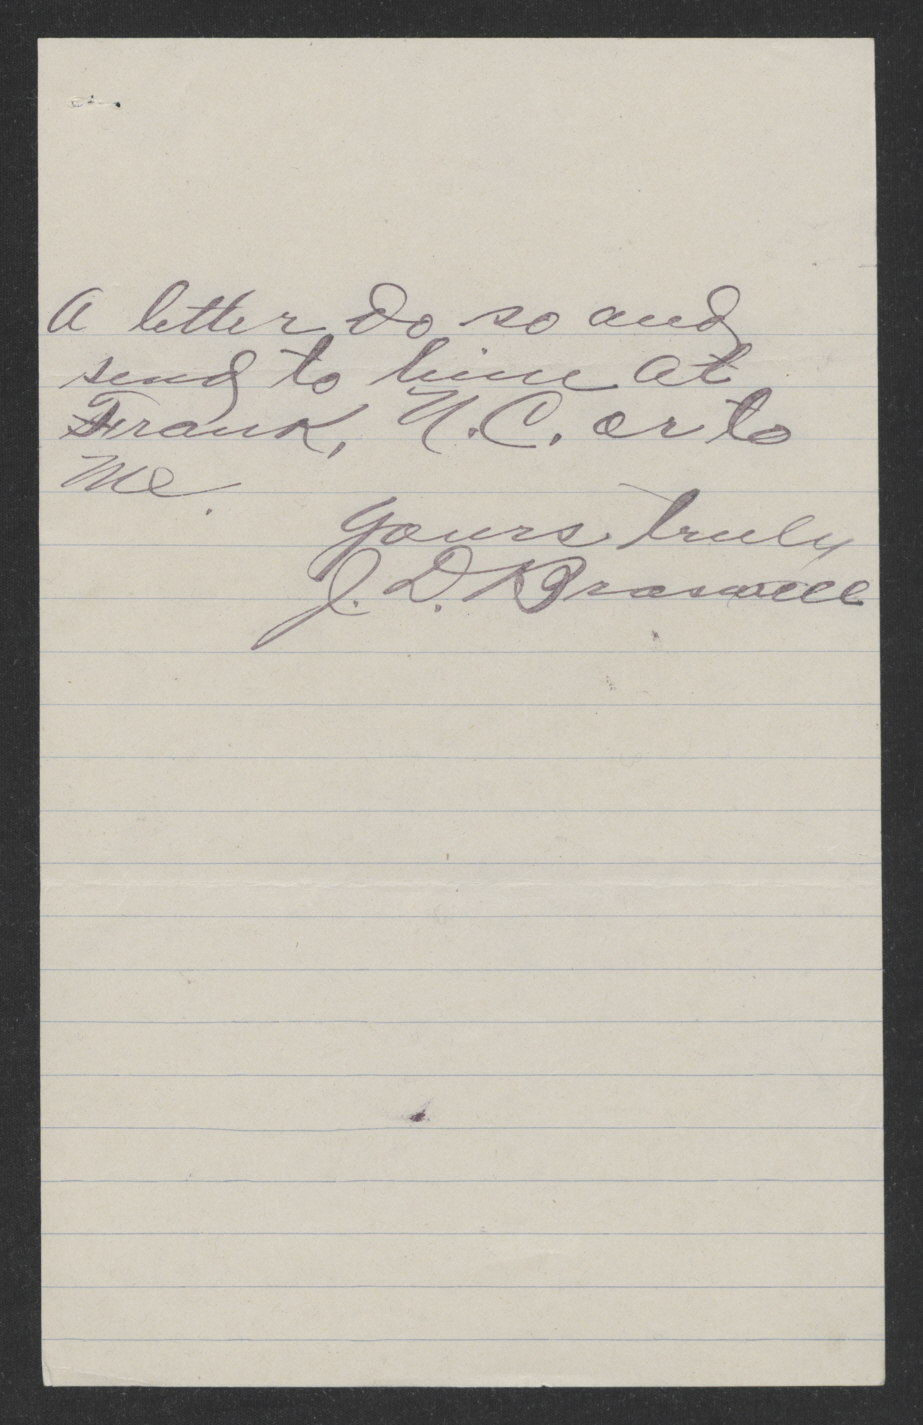 A letter Do so and
send to him at
Frank, N.C. or to
Me.
Yours truly
J. D. Braswell